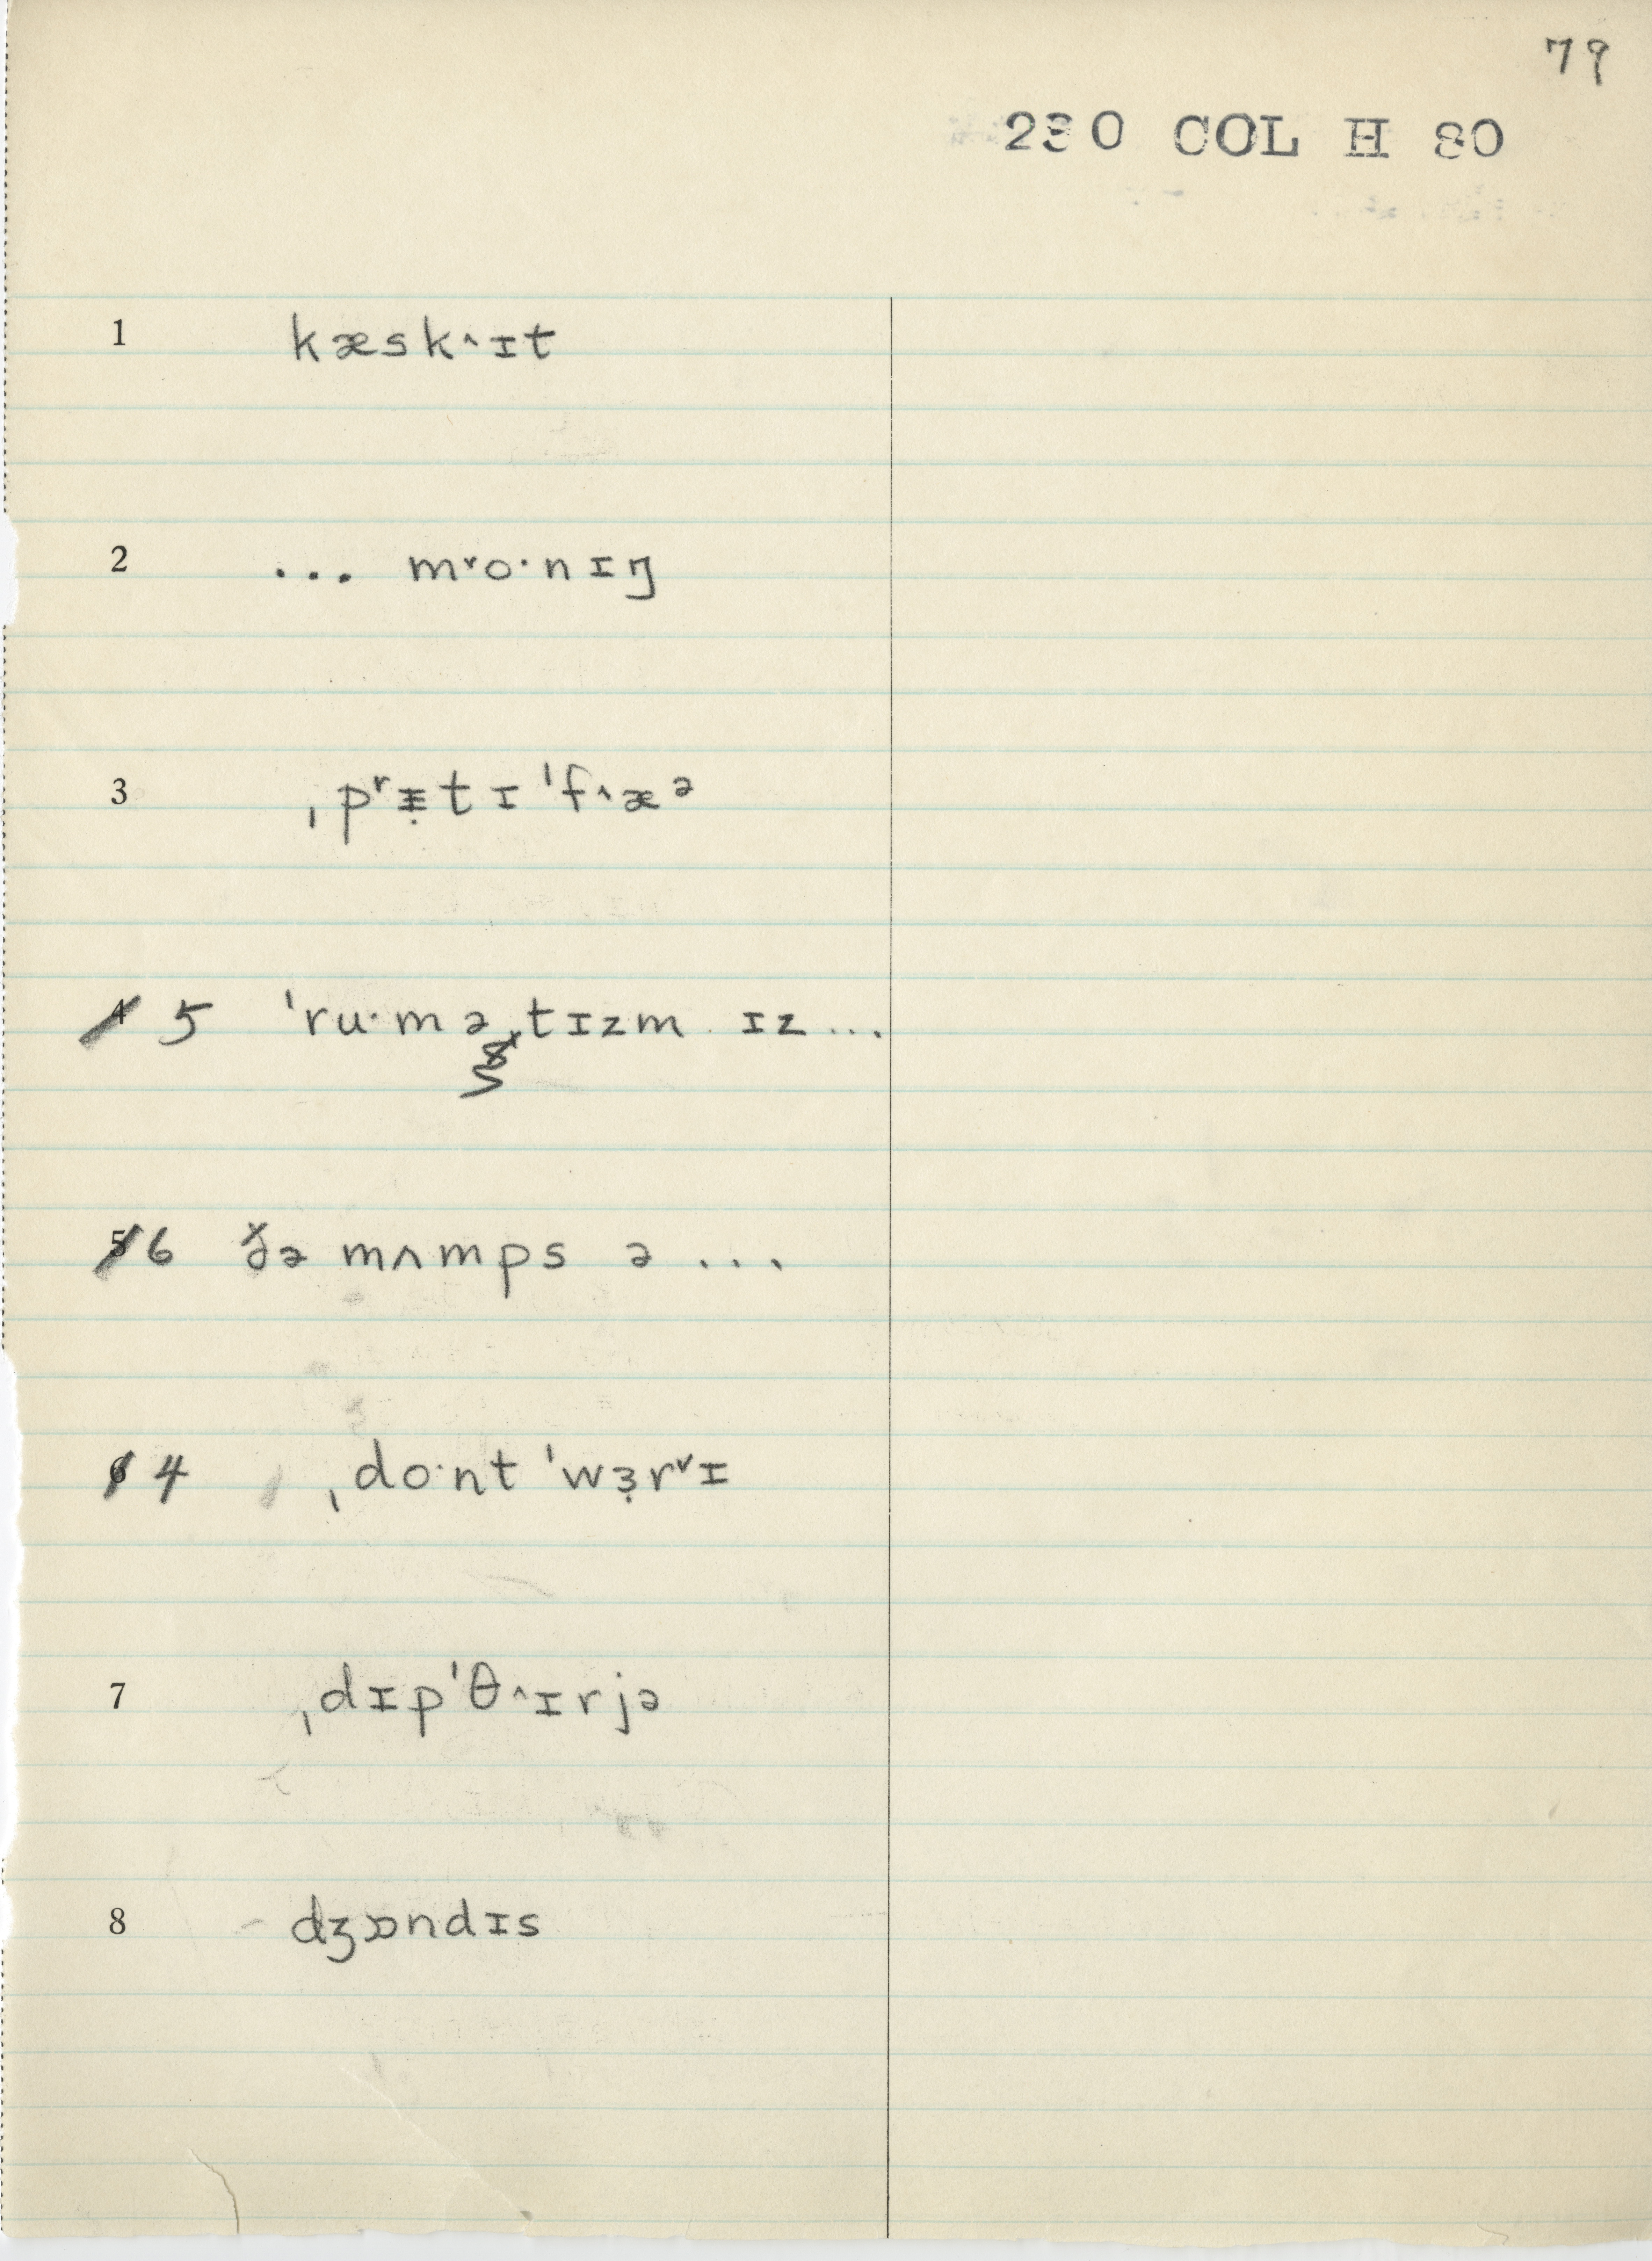 79
230 COL H 80
1 kæsk˄ɪt
2 ... m˅o·nɪŋ
3 ˌpʳɪ̵̣tɪˈf˄æᵊ
4 5 ˈru·məˌtɪzm ɪz...
5 6 ðə mʌmps ə ...
6 4 ˌdo·nt ˈwɜ̣r˅ɪ
7 ˌdɪpˈθ˄ɪrjə
8 dʒɒndɪs